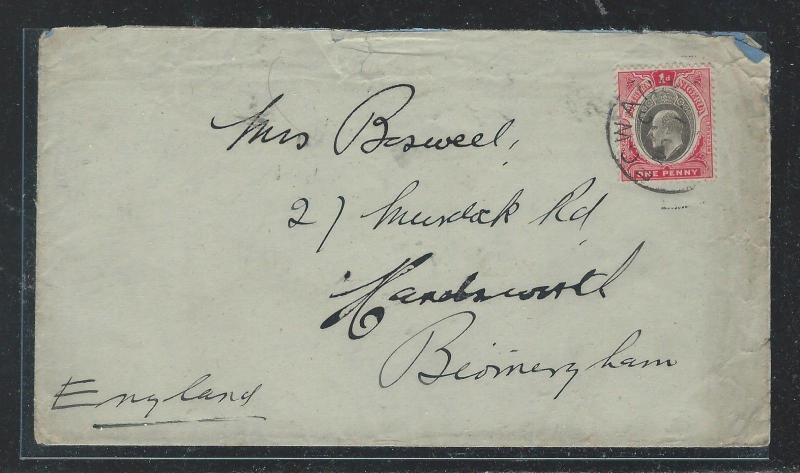 1d
NIGERIA
ONE PENNY
Mrs Boswell,
27 Murdock Rd
Handsworth
Birmingham
England